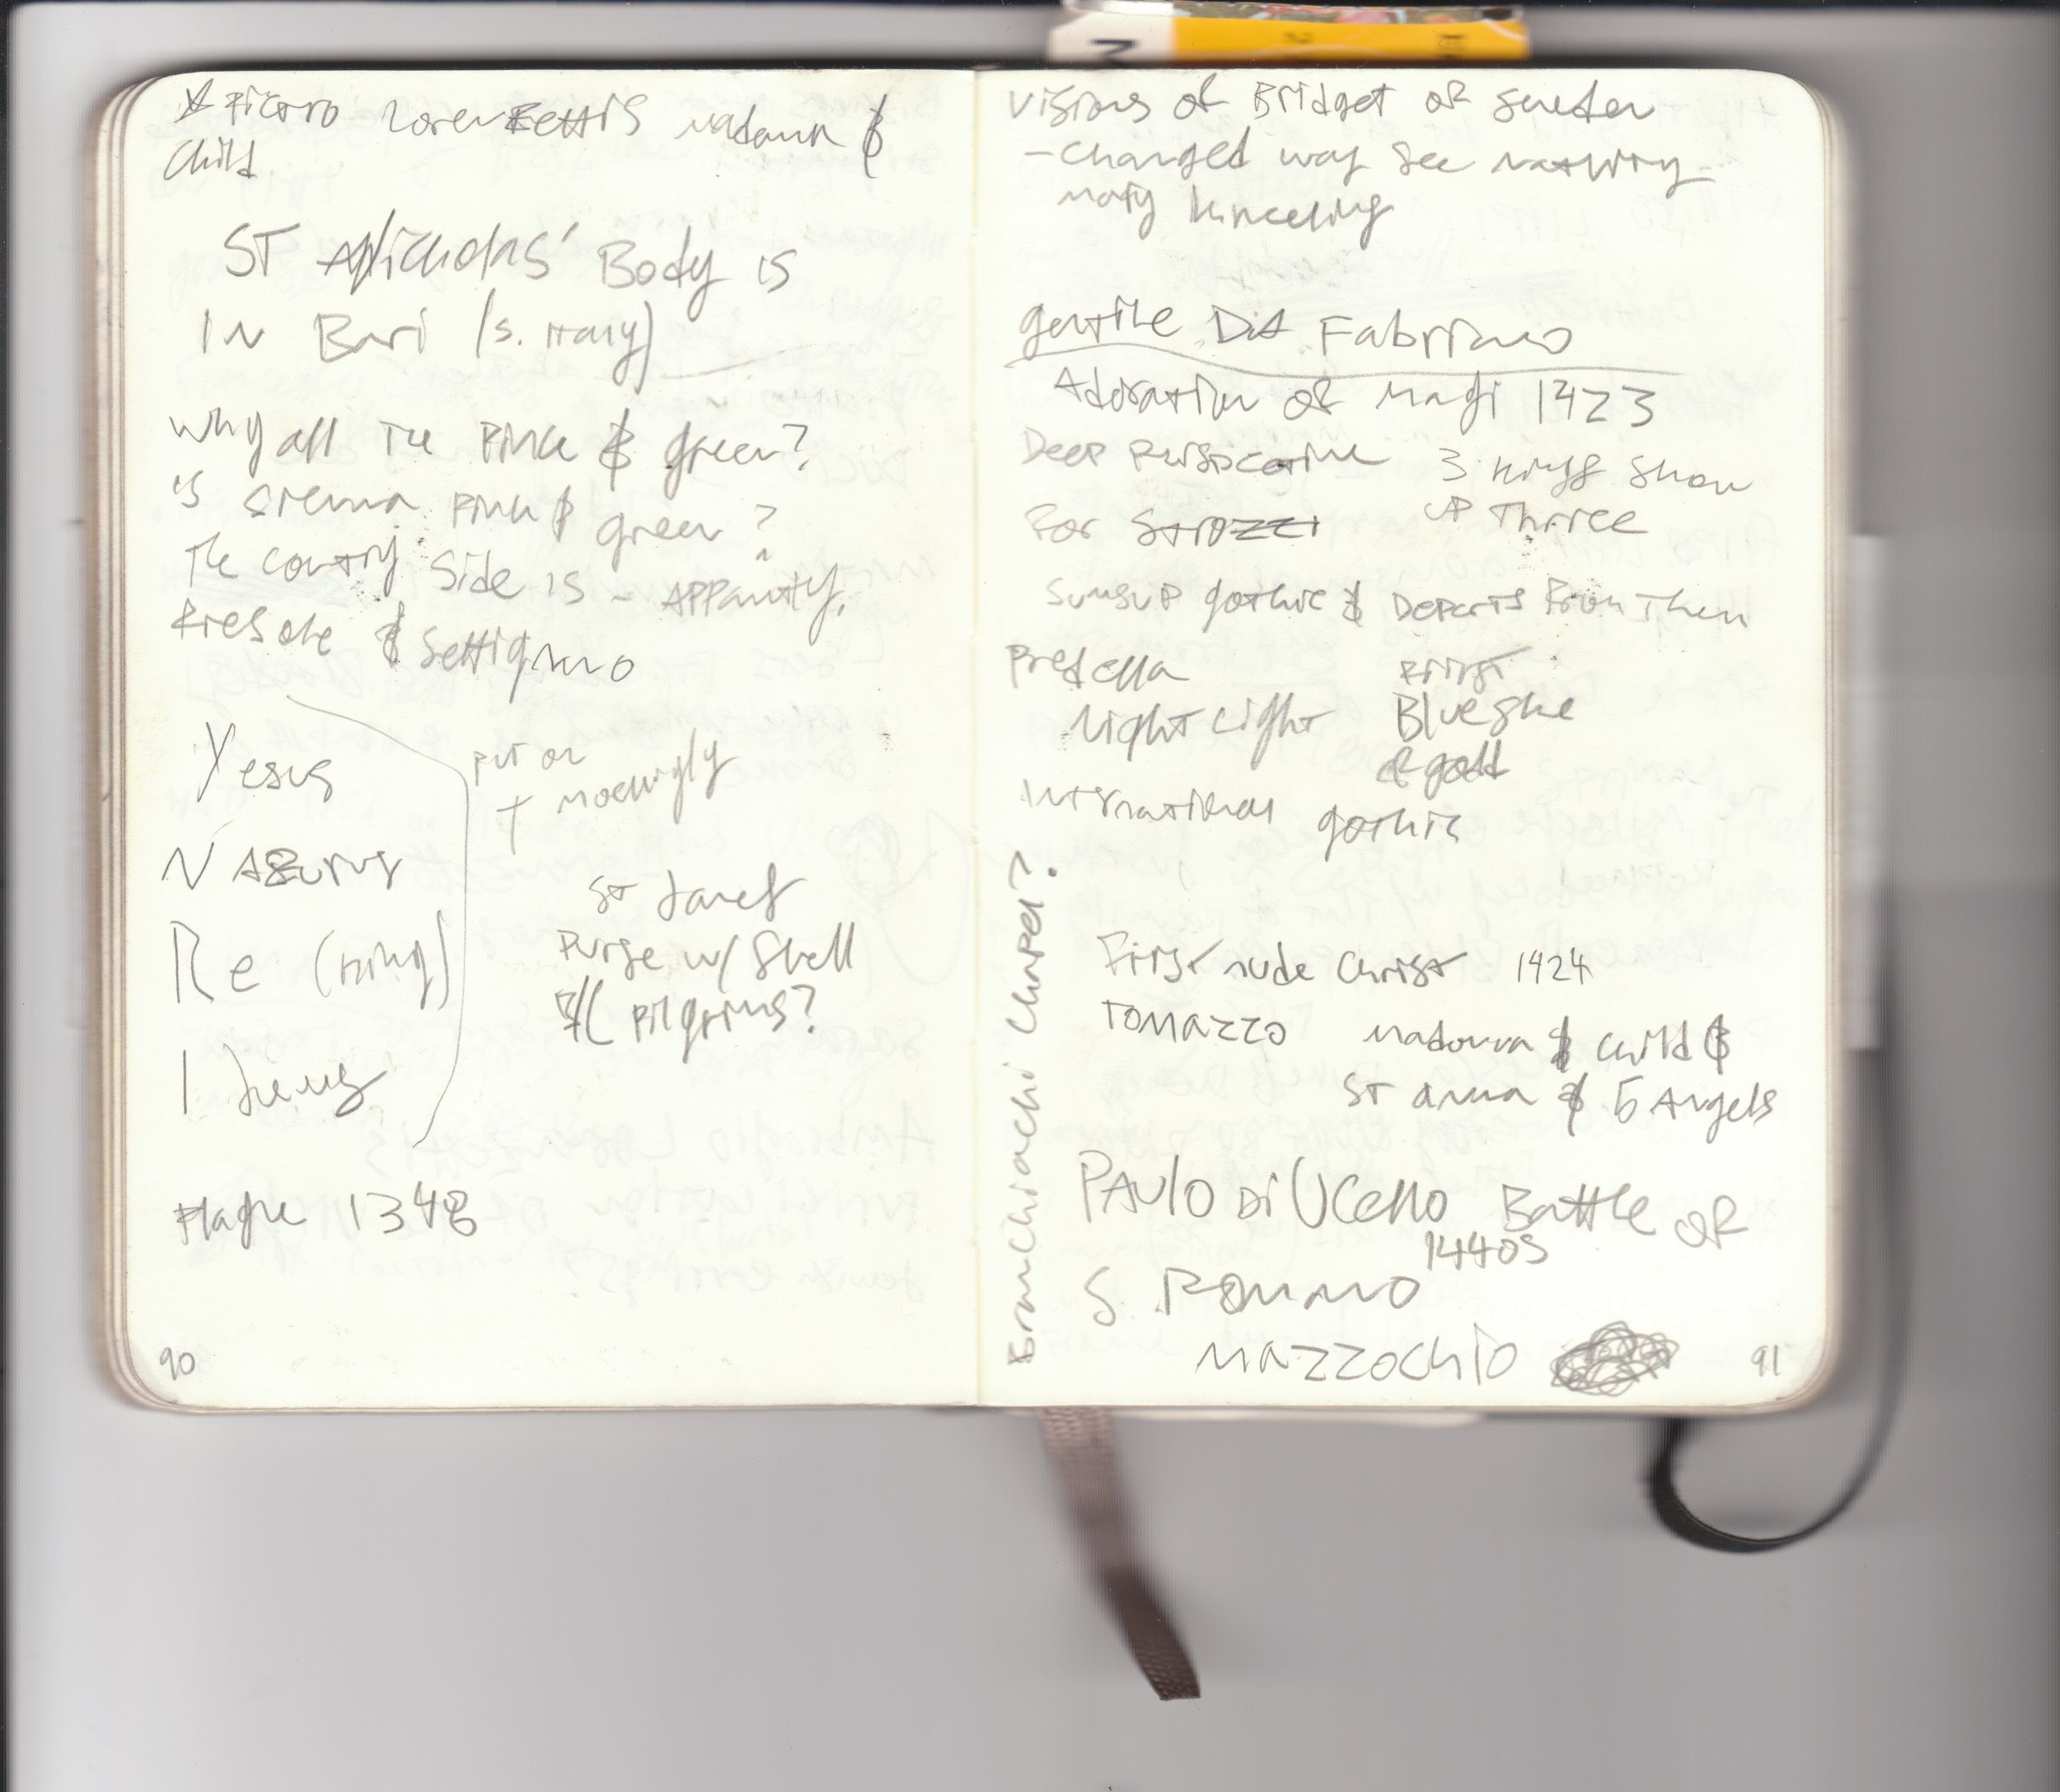 Pietro Lorenzettis Madonna &
Child
ST Nicholas' Body is
IN Bari (S. Italy)
Why all the Pink & green?
is sienna Pink & green?
The country Side is - APPanty.
Fiesole & Settignano
Yesus
Nazurus
Re (King)
I Jews
Put on
+ mockingly
St James
Purse w/ Shell
Pilgrims?
Plague 1348
90
Visions of Bridget of Sweden
- Changed way See Nativity -
Mary kneeling
gentile Da Fabriano
Adoration of Magi 1423
Deep Perspective 3 Kings Show
For Strozzi UP Thrree
Sumsup gothic & Departs From Them
Predella First
Night Light Blueske
of gold
International gothic
Branchiachi Chapel?
First nude Christ 1424
Tomazzo Madonna & Child &
ST Anna & 5 Angels
PAULO Di UCello Battle OF
1440s
S Romano
Mazzochio
91